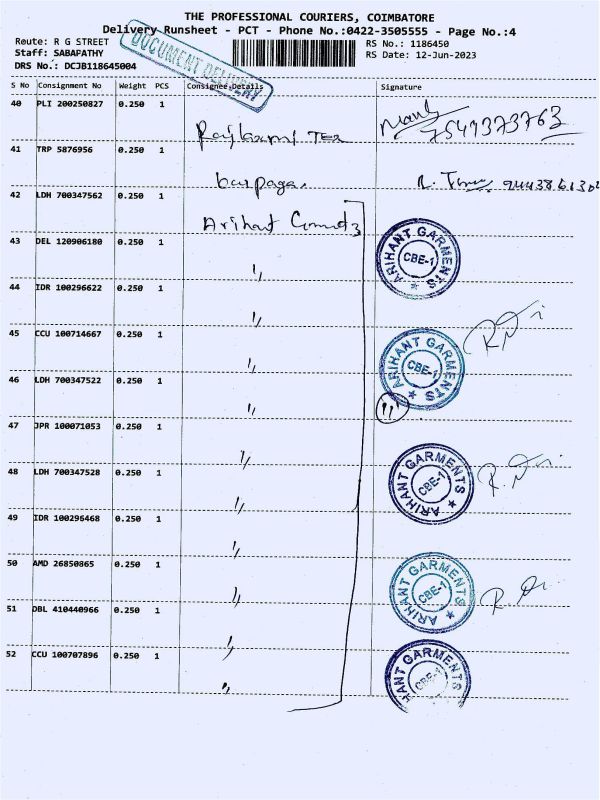 THE PROFESSIONAL COURIERS, COIMBATORE
Delivery Runsheet - PCT - Phone No.:0422-3505555 - Page No.:4
Route: R G STREET
RS No.: 1186450
Staff: SABAPATHY
RS Date: 12-Jun-2023
DRS No.: DCJB118645004
DOCUMENT DELIVERY
S No Consignment No Weight PCS Consignee Details Signature
40 PLI 200250827 0.250 1
Rajlaxmi Tex 7549373763
41 TRP 5876956 0.250 1
42 LDH 700347562 0.250 1
Arihant
43 DEL 120906180 0.250 1
ARIHANT GARMENTS
CBE-1
"
44 IDR 100296622 0.250 1
"
45 CCU 100714667 0.250 1
ARIHANT GARMENTS
CBE-1
"
46 LDH 700347522 0.250 1
" (11)
47 JPR 100071053 0.250 1
"
48 LDH 700347528 0.250 1
ARIHANT GARMENTS
CBE-1
"
49 IDR 100296468 0.250 1
"
50 AMD 26850865 0.250 1
ARIHANT GARMENTS
CBE-1
"
51 DBL 410440966 0.250 1
"
52 CCU 100707896 0.250 1
HANT GARMENTS
"